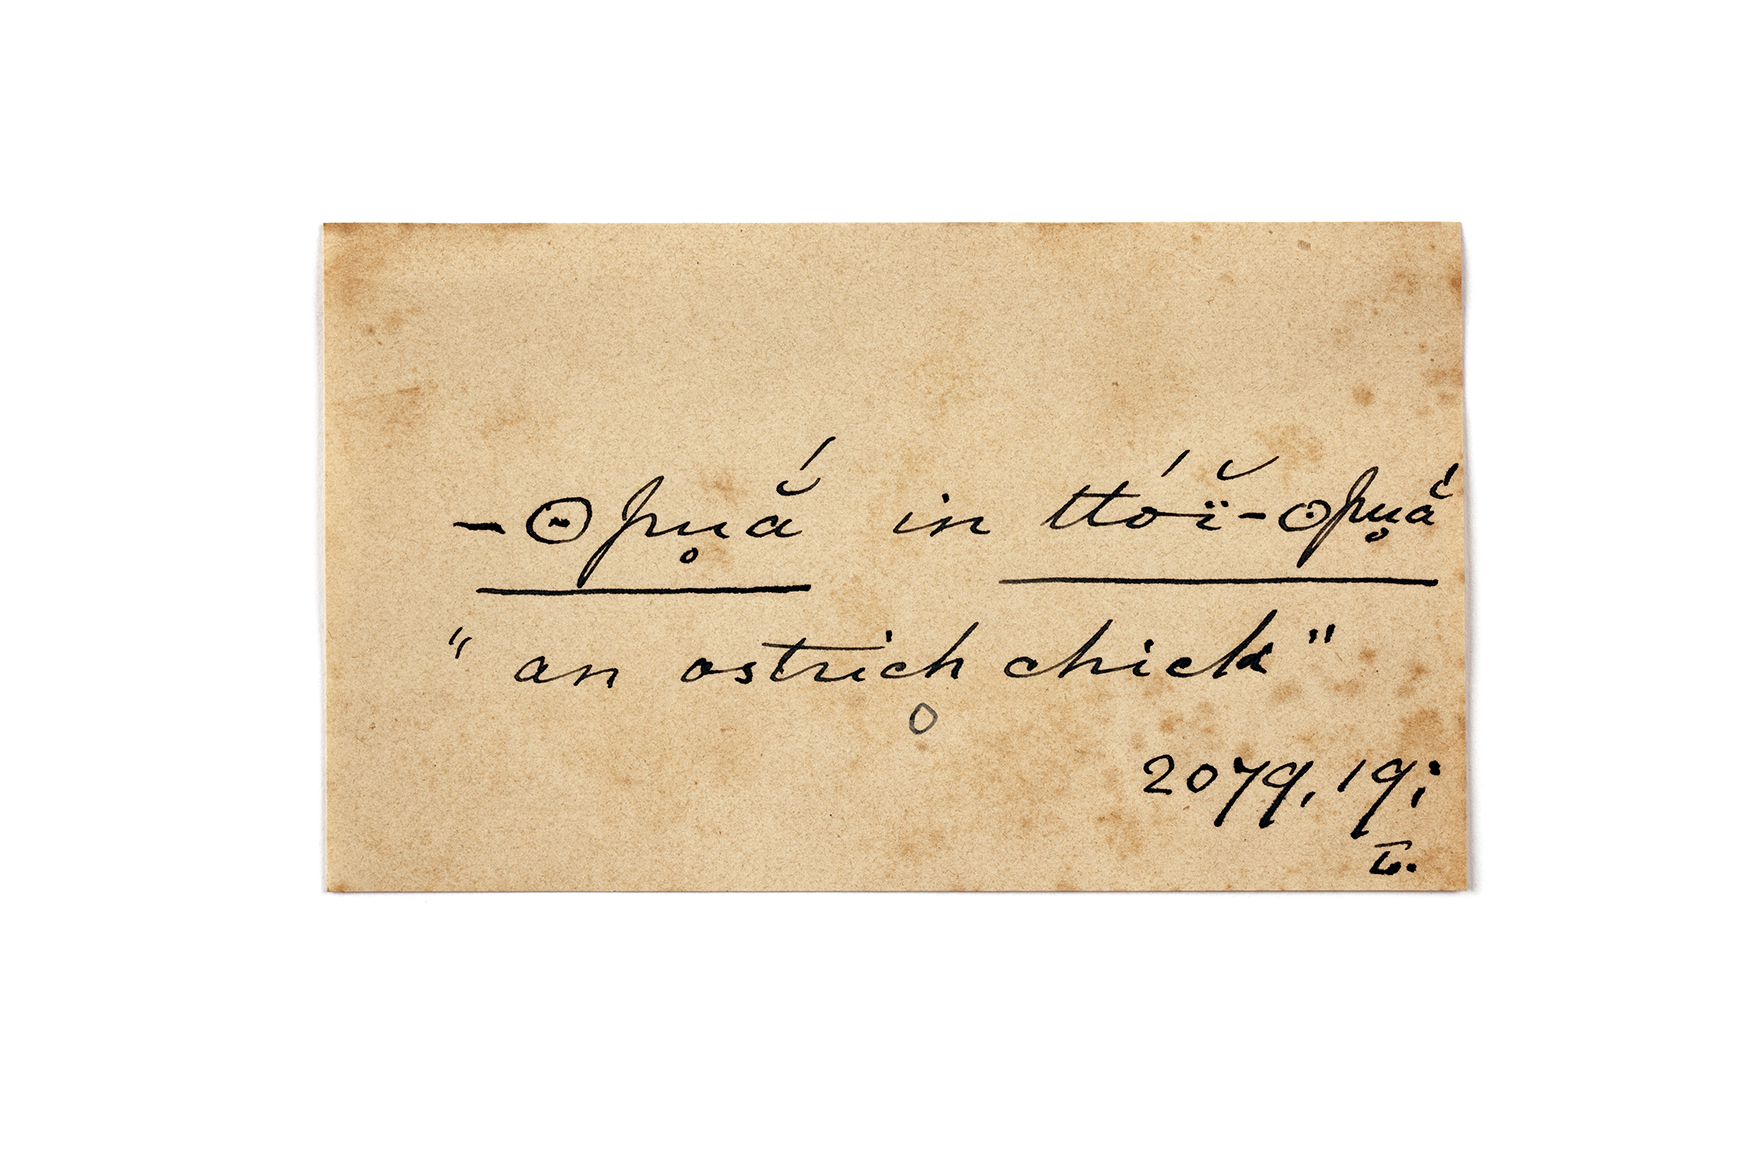 -ʘpu̥ắ in ttóï̆-ʘpu̥ắ
" an ostrich chick "
O
2079, 19;
L.